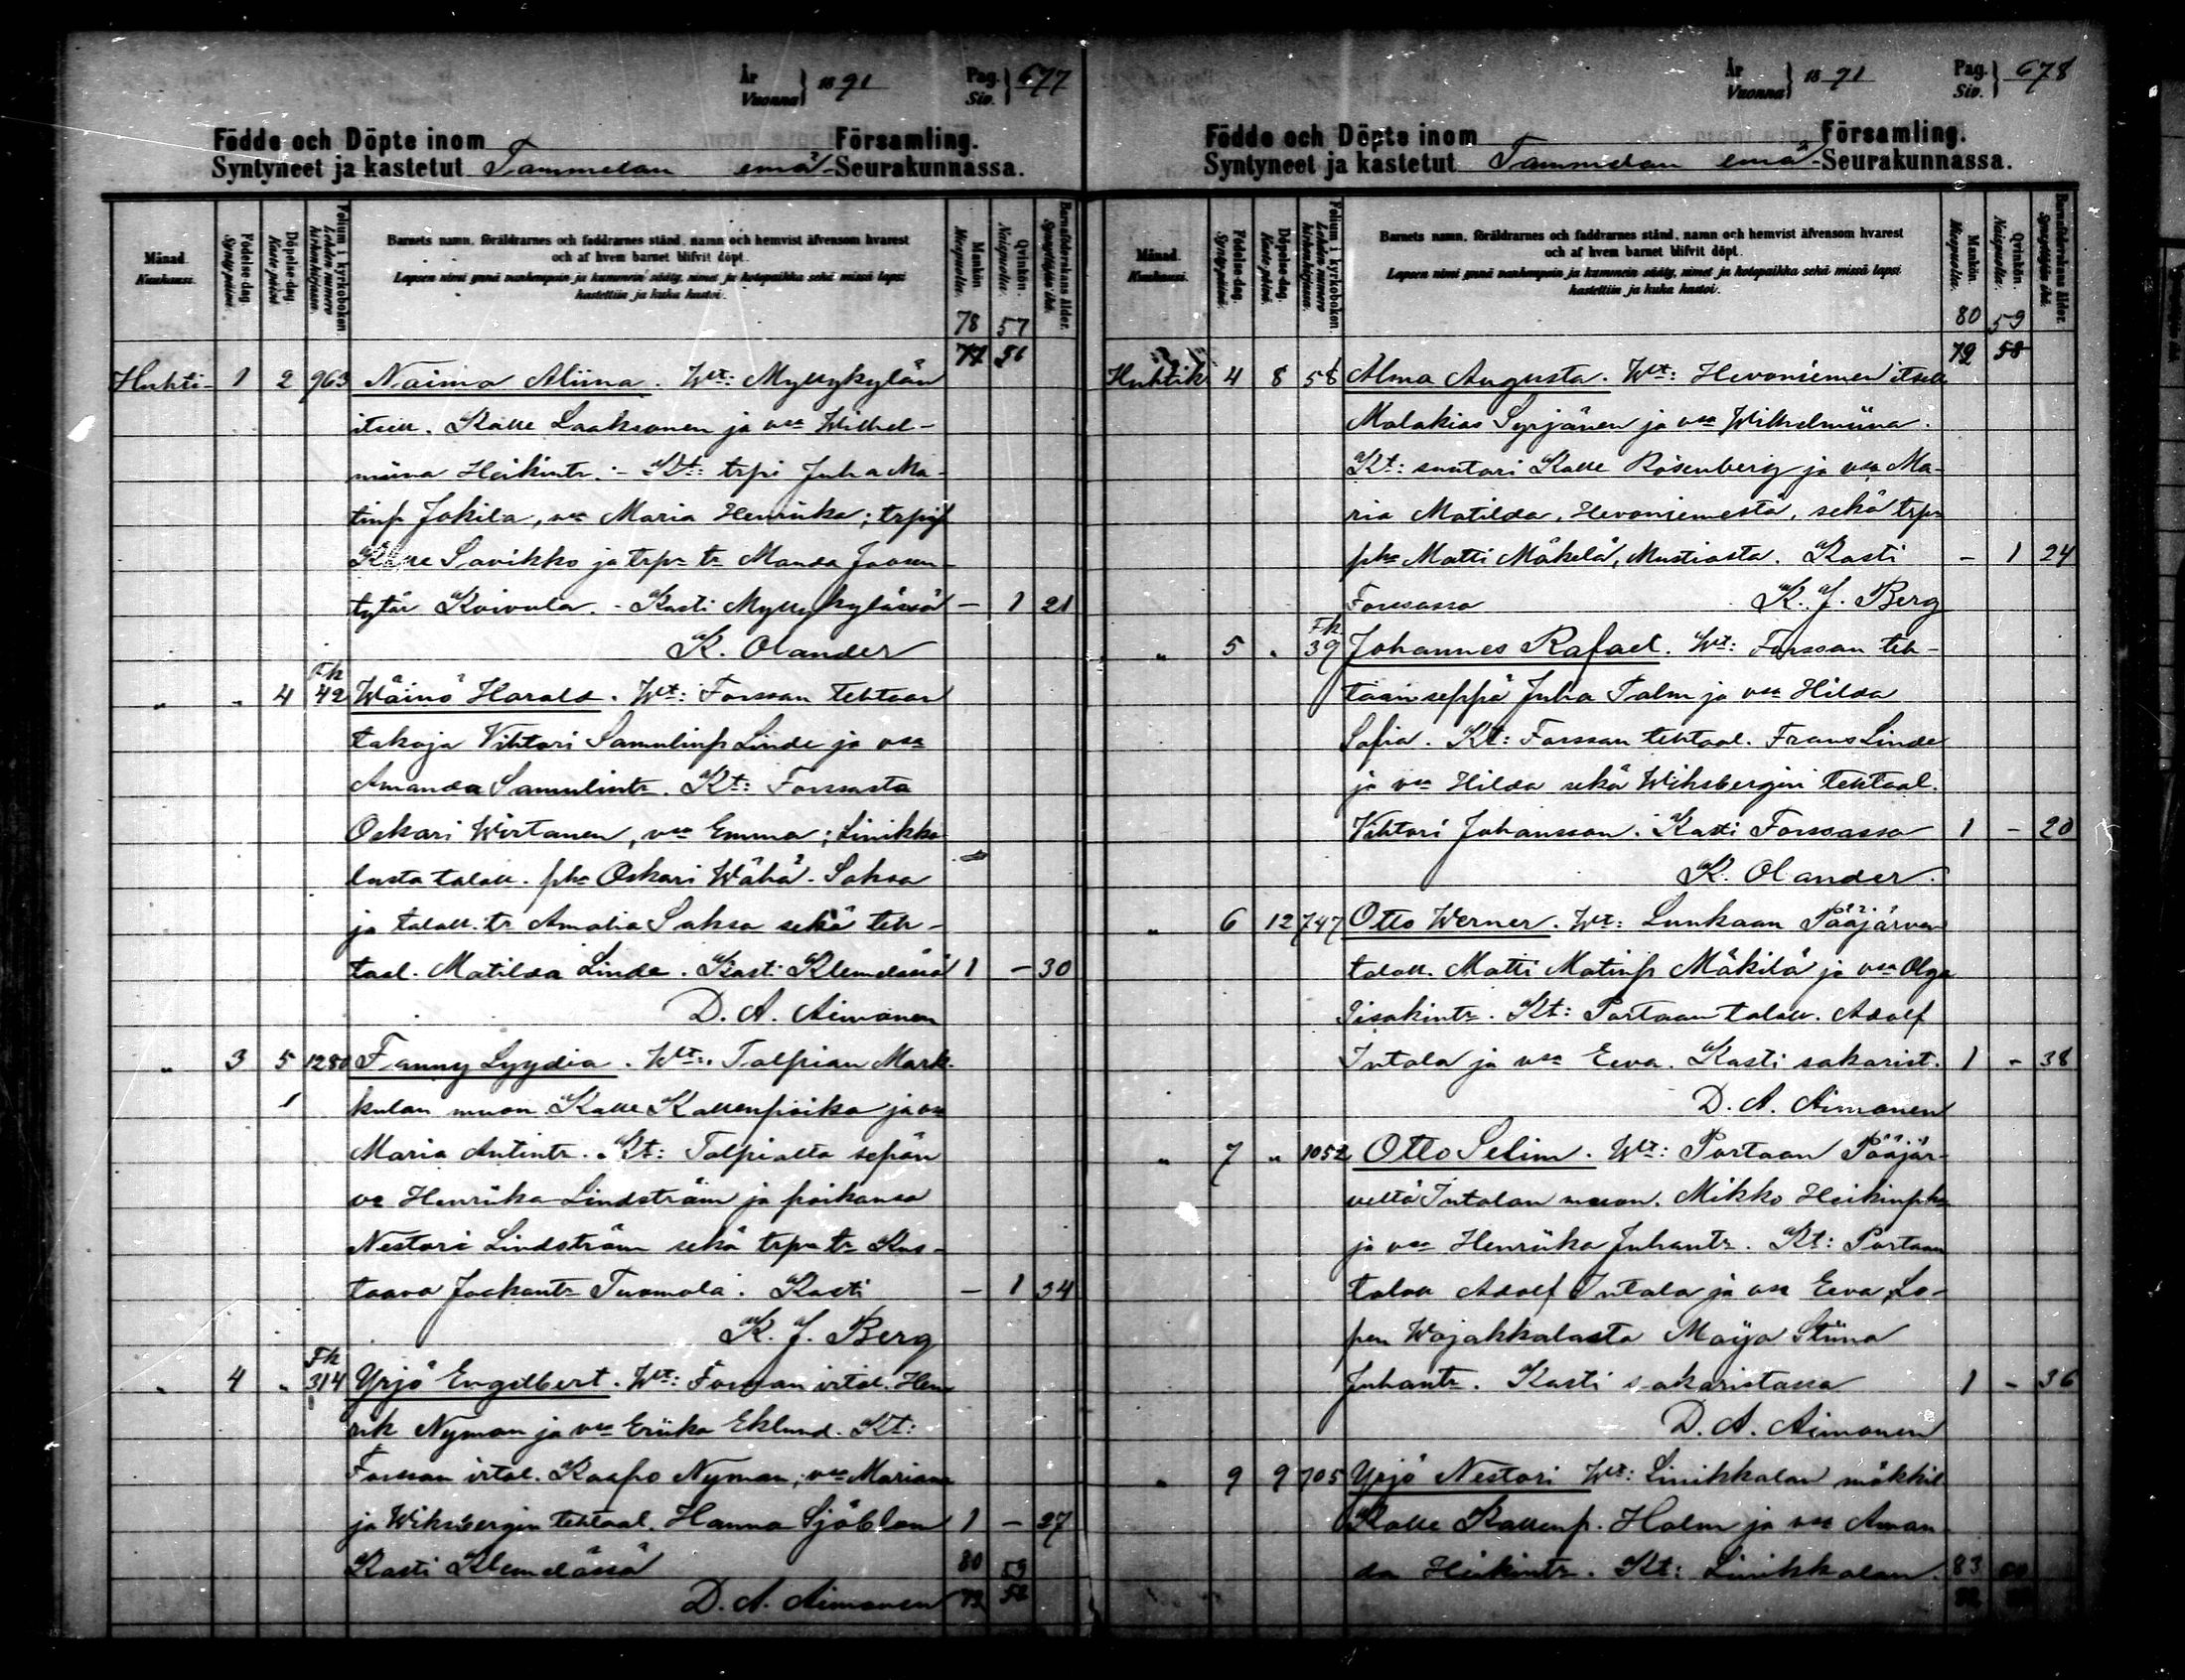 År
Vuonna } 1891 Pag.
Siv. } 677
Födde och Döpte inom Församling.
Syntyneet ja kastetut Tammelan emä- Seurakunnassa.
Månad. Kuukausi.
Födelse-dag. Syntypäivä.
Döpelse-dag. Kaste-päivä.
Folium i kyrkoboken. Lehden numero kirkonkirjassa.
Barnets namn, föräldrarnes och faddrarnes stånd, namn och hemvist äfvensom hvarest
och af hvem barnet blifvit döpt.
Lapsen nimi ynnä vanhempain ja kummein sääty, nimet ja kotopaikka sekä missä lapsi
kastettiin ja kuka kastoi.
Mankön. Miespuolia.
Qvinkön. Naispuolia.
Barnaföderskans ålder. Synnyttäjän ikä.
78 57
77 56
Huhti- 1 2 963 Naima Aliina. Wt: Myllykylän
itsell. Kalle Laaksonen ja vsa Wilhel-
miina Heikintr. - Kt: trpi Juha Ma-
tinp Jokila, vsa Maria Henrika; trpi
Kalle Savikko ja trpn tr Manda Joosen-
tytär Koivula. - Kasti Myllykylässä - 1 21
K. Olander
" " 4 Fk 42 Wäinö Harald. Wt: Forssan tehtaan
takoja Vihtori Samulinp Linde ja vsa
Amanda Samulintr. Kt: Forssasta
Oskari Wirtanen, vsa Emma; Linikka-
lasta talall. pka Oskari Wähä-Saksa
ja talall. tr Amalia Saksa sekä teh-
taal. Matilda Linde. Kasti Klemelässä 1 - 30
D. A. Aimonen
" 3 5 1280 Fanny Lyydia. Wt: Talpian Mark-
kulan muon. Kalle Kallenpoika ja vsa
Maria Antintr. Kt: Talpialta sepän
va Henriika Lindström ja poikansa
Nestori Lindström sekä trpn tr Kus-
taava Jaakontr Tuomola. Kasti - 1 34
K. J. Berg
" 4 " Fk 314 Yrjö Engelbert. Wt: Forssan irtol. Hen-
rik Nyman ja vsa Eriika Eklund. Kt:
Forssan irtol. Kaapo Nyman, vsa Mariana
ja Wiksbergin tehtaal. Hanna Sjöblom 1 - 27
Kasti Klemelässä 80 59
D. A. Aimonen 79 58
År
Vuonna } 1891 Pag.
Siv. } 678
Födde och Döpte inom Församling.
Syntyneet ja kastetut Tammelan emä- Seurakunnassa.
Månad. Kuukausi.
Födelse-dag. Syntypäivä.
Döpelse-dag. Kaste-päivä.
Folium i kyrkoboken. Lehden numero kirkonkirjassa.
Barnets namn, föräldrarnes och faddrarnes stånd, namn och hemvist äfvensom hvarest
och af hvem barnet blifvit döpt.
Lapsen nimi ynnä vanhempain ja kummein sääty, nimet ja kotopaikka sekä missä lapsi
kastettiin ja kuka kastoi.
Mankön. Miespuolia.
Qvinkön. Naispuolia.
Barnaföderskans ålder. Synnyttäjän ikä.
80 59
79 58
Huhtik 4 8 58 Alma Augusta. Wt: Hevoniemen itsell
Malakias Syrjänen ja vsa Wilhelmiina.
Kt: suutari Kalle Rosenberg ja vsa Ma-
ria Matilda, Hevoniemestä, sekä trpn
pka Matti Mäkelä, Mustiasta. Kasti - 1 24
Forssassa K. J. Berg
" 5 " Fk 39 Johannes Rafael. Wt: Forssan teh-
taan seppä Juha Palm ja vsa Hilda
Sofia. Kt: Forssan tehtaal. Frans Linde
ja vsa Hilda sekä Wiksbergin tehtaal.
Vihtori Johansson. Kasti Forssassa 1 - 20
K. Olander.
" 6 12 747 Otto Werner. Wt: Lunkaan Pääjärven
talall. Matti Matinp Mäkilä ja vsa Olga
Iisakintr. Kt: Portaan talall. Adolf
Intala ja vsa Eeva. Kasti sakarist. 1 - 38
D. A. Aimonen
" 7 " 1052 Otto Selim. Wt: Portaan Pääjär-
veltä Intalan muon. Mikko Heikinpka
ja vsa Henriika Juhantr. Kt: Portaan
talall Adolf Intala ja vsa Eeva, Lo-
pen Wojakkalasta Maija Stiina
Juhantr. Kasti sakaristassa 1 - 36
D. A. Aimonen
" 9 9 705 Yrjö Nestori Wt: Linikkalan mäkkil
Kalle Kallenp. Holm ja vsa Aman-
da Heikintr. Kt: Linikkalan. 83 60